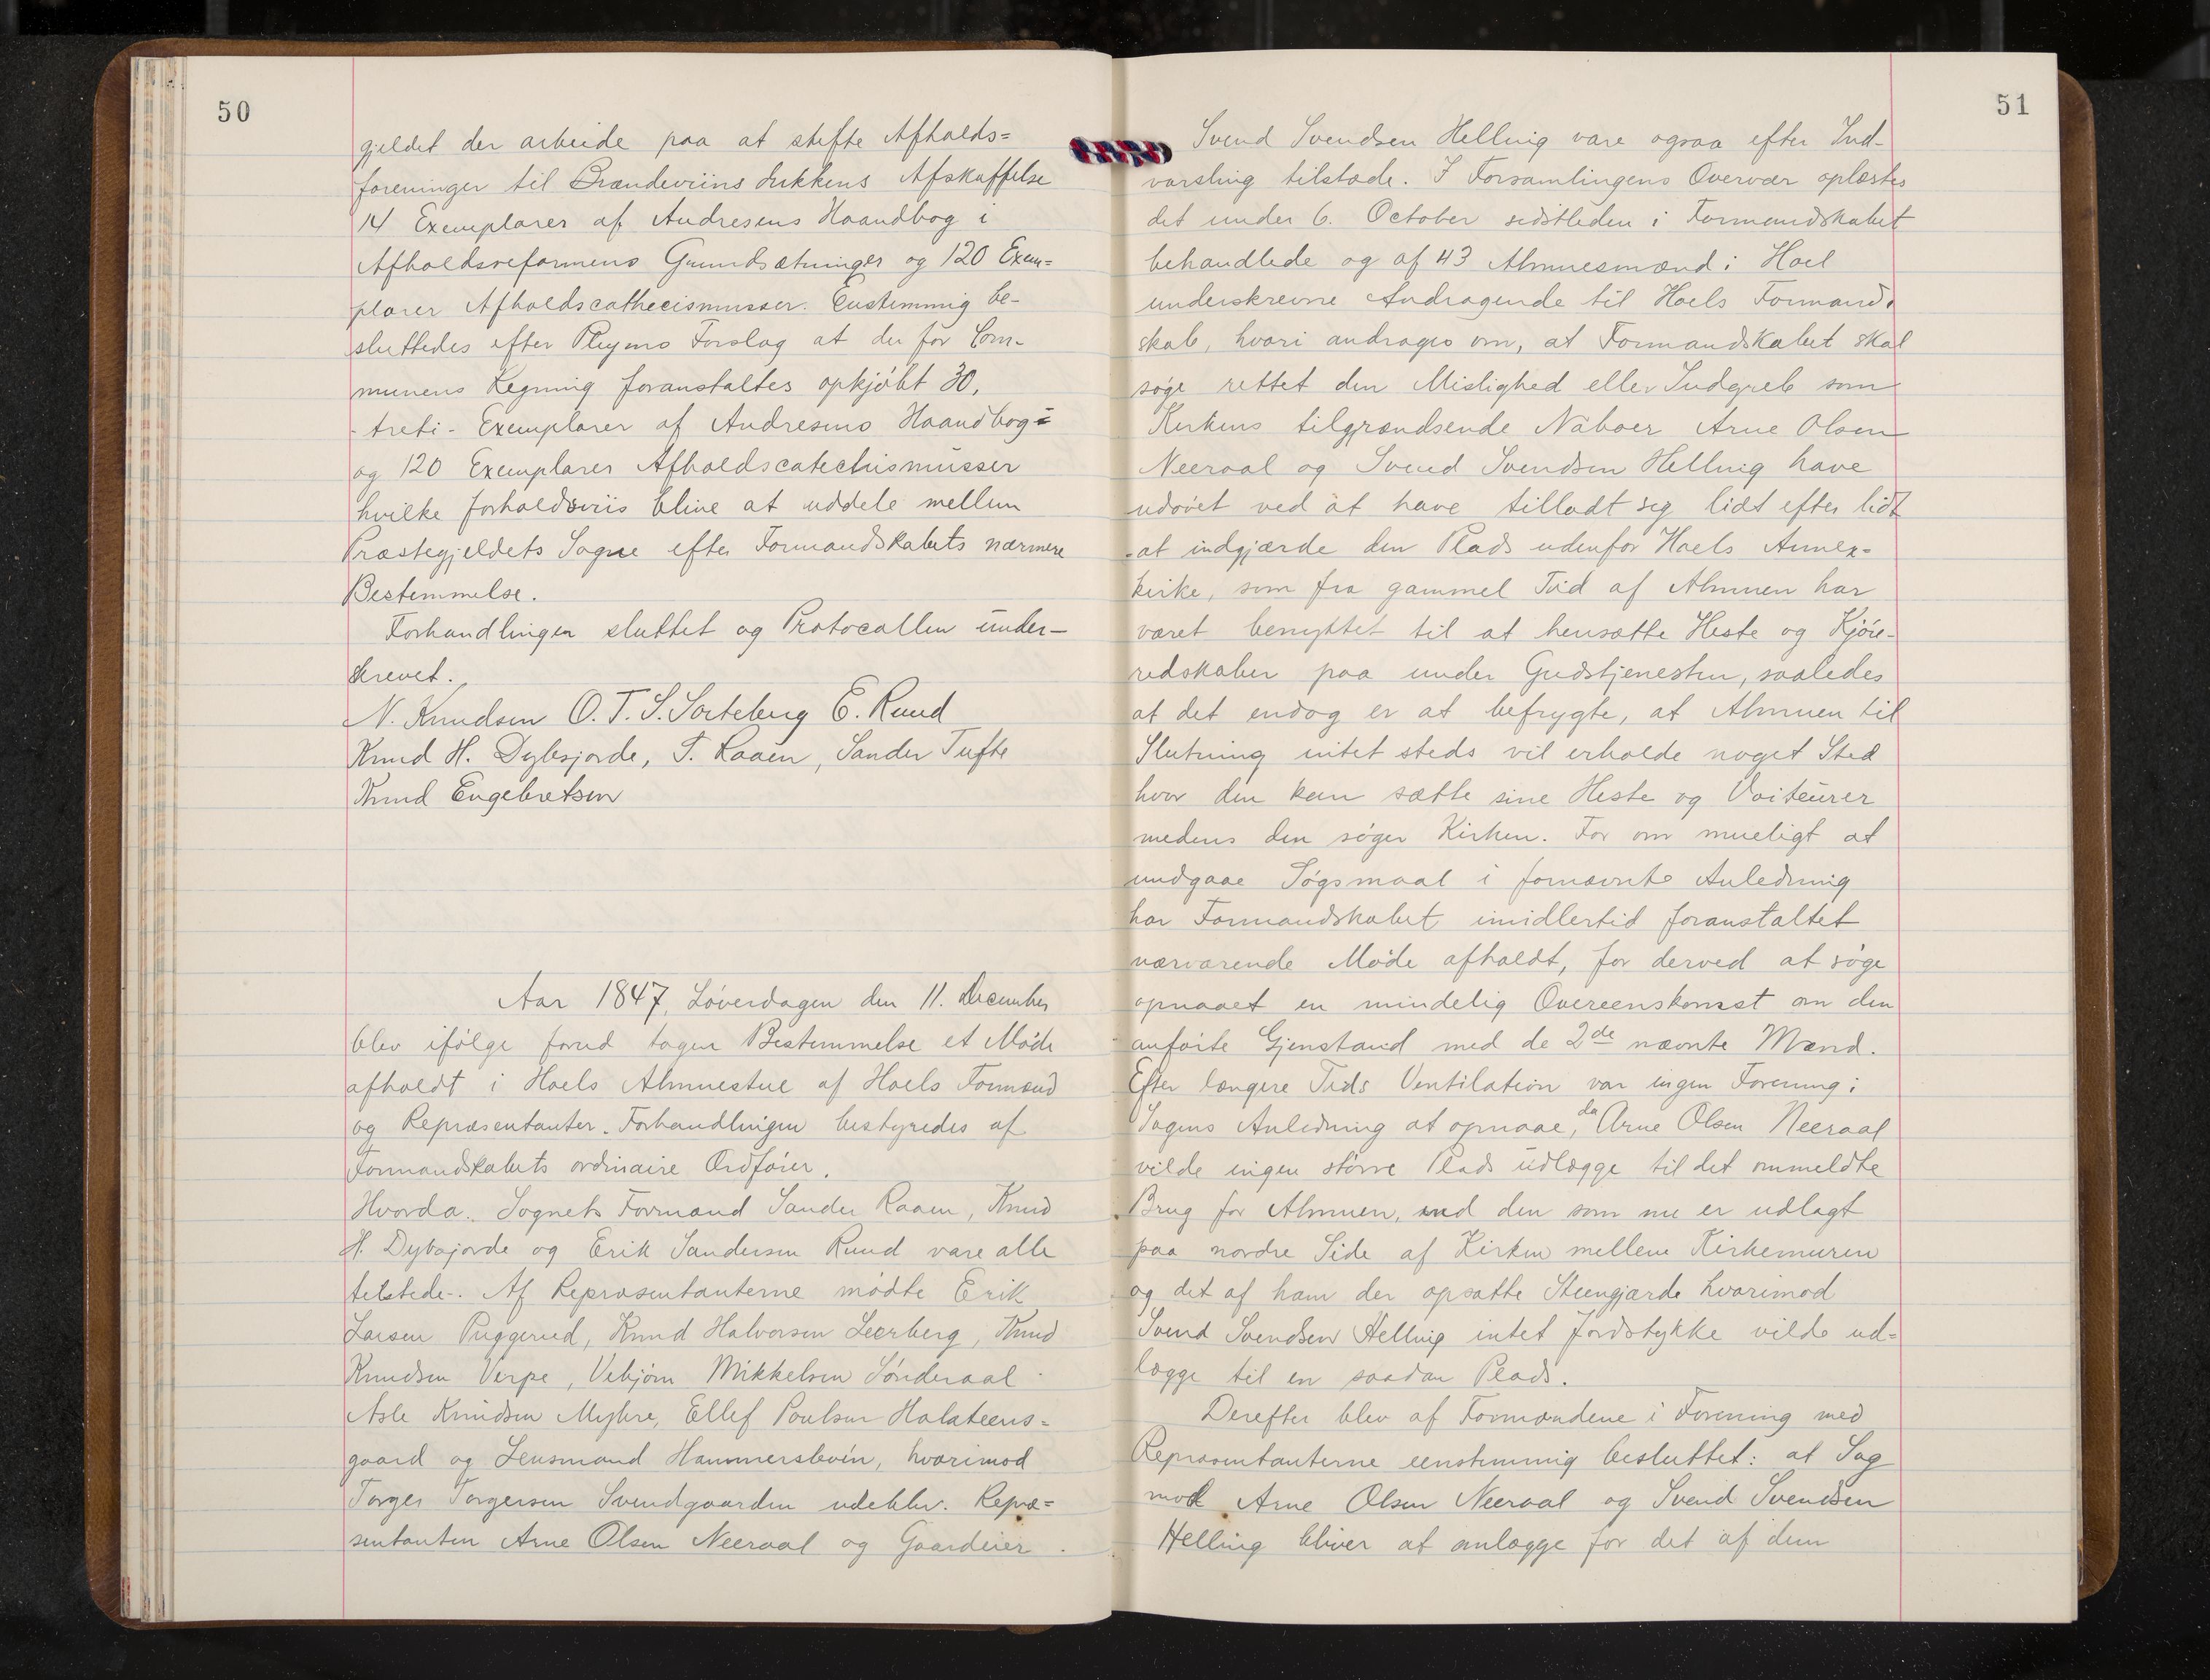 50
gjeldet der arbeide paa at stifte Afholds=
foreninger til Brændeviins Drikkens Afskaffelse
14 Exemplarer af Andresens Haandbog i
Afholdsreformens Grundsætninger og 120 Exem=
plarer Afholdscathecismusser. Eenstemmig be-
sluttedes efter Pleyms Forslag at der for Com-
munens Regning foranstaltes opkjøbt 30,
- treti - Exemplarer af Andresens Haandbog =
og 120 Exemplarer Afholdscatechismusser
hvilke forholdsviis blive at uddele mellem
Præstegjeldets Sogne efter Formandskabets nærmere
Bestemmelse.
Forhandlingen sluttet og Protocollen under-
skrevet.
N. Knudsen O. T. S. Sorteberg E. Ruud
Knud H. Dybsjorde, T. Raaen, Sander Tufte
Knud Engebretsen
Aar 1847, Løverdagen den 11. December
blev ifølge forud tagen Bestemmelse et Møde
afholdt i Hoels Almuestue af Hoels Formænd
og Repræsentanter. Forhandlingen bestyredes af
Formandskabets ordinaire Ordfører.
Hvorda. Sognets Formænd Sander Raaen, Knud
H. Dybsjorde og Erik Sandersen Ruud vare alle
tilstede-. Af Repræsentanterne mødte Erik
Larsen Puggerud, Knud Halvorsen Leerberg, Knud
Knudsen Verpe, Vebjørn Mikkelsen Sønderaal
Asle Knudsen Myhre, Ellef Poulsen Halsteens=
gaard og Lensmand Hammersbøen, hvorimod
Torger Torgersen Svendgaarden udeblev. Repræ=
sentanten Arne Olsen Neeraal og Gaardeier
51
Svend Svendsen Helling vare ogsaa efter Ind-
varsling tilstæde. I Forsamlingens Overvær oplæstes
det under 6. October sidstleden i Formandskabet
behandlede og af 43 Almuesmænd i Hoel
underskrevne Andragende til Hoels Formand-
skab, hvori andrages om, at Formandskabet skal
søge rettet den Mislighed eller Indgreb som
Kirkens tilgrændsende Naboer Arne Olsen
Neeraal og Svend Svendsen Helling have
udøvet ved at have tilladt sig lidt efter lidt
at indgjærde den Plads udenfor Hoels Annex=
kirke, som fra gammel Tid af Almuen har
været benyttet til at hensætte Heste og Kjøre-
redskaber paa under Gudstjenesten, saaledes
at det endog er at befrygte, at Almuen til
Slutning intet steds vil erholde noget Sted
hvor den kan sætte sine Heste og Voiteurer
medens den søger Kirken. For om mueligt at
undgaae Søgsmaal i fornævnte Anledning
har Formandskabet imidlertid foranstaltet
nærværende Møde afholdt, for derved at søge
opnaaet en mindelig Overeenskomst om den
anførte Gjenstand med de 2de nævnte Mænd.
Efter længere Tids Ventilation var ingen Forening i
Sagens Anledning at opnaae, da Arne Olsen Neeraal
vilde ingen større Plads udlægge til det ommeldte
Brug for Almuen, end den som nu er udlagt
paa nordre Side af Kirken mellem Kirkemuren
og det af ham der opsatte Steengjærde hvorimod
Svend Svendsen Helling intet Jordstykke vilde ud=
lægge til en saadan Plads.
Derefter blev af Formændene i Forening med
Repræsentanterne eenstemmig besluttet: at Sag
mod Arne Olsen Neeraal og Svend Svendsen
Helling bliver at anlægge for det af dem